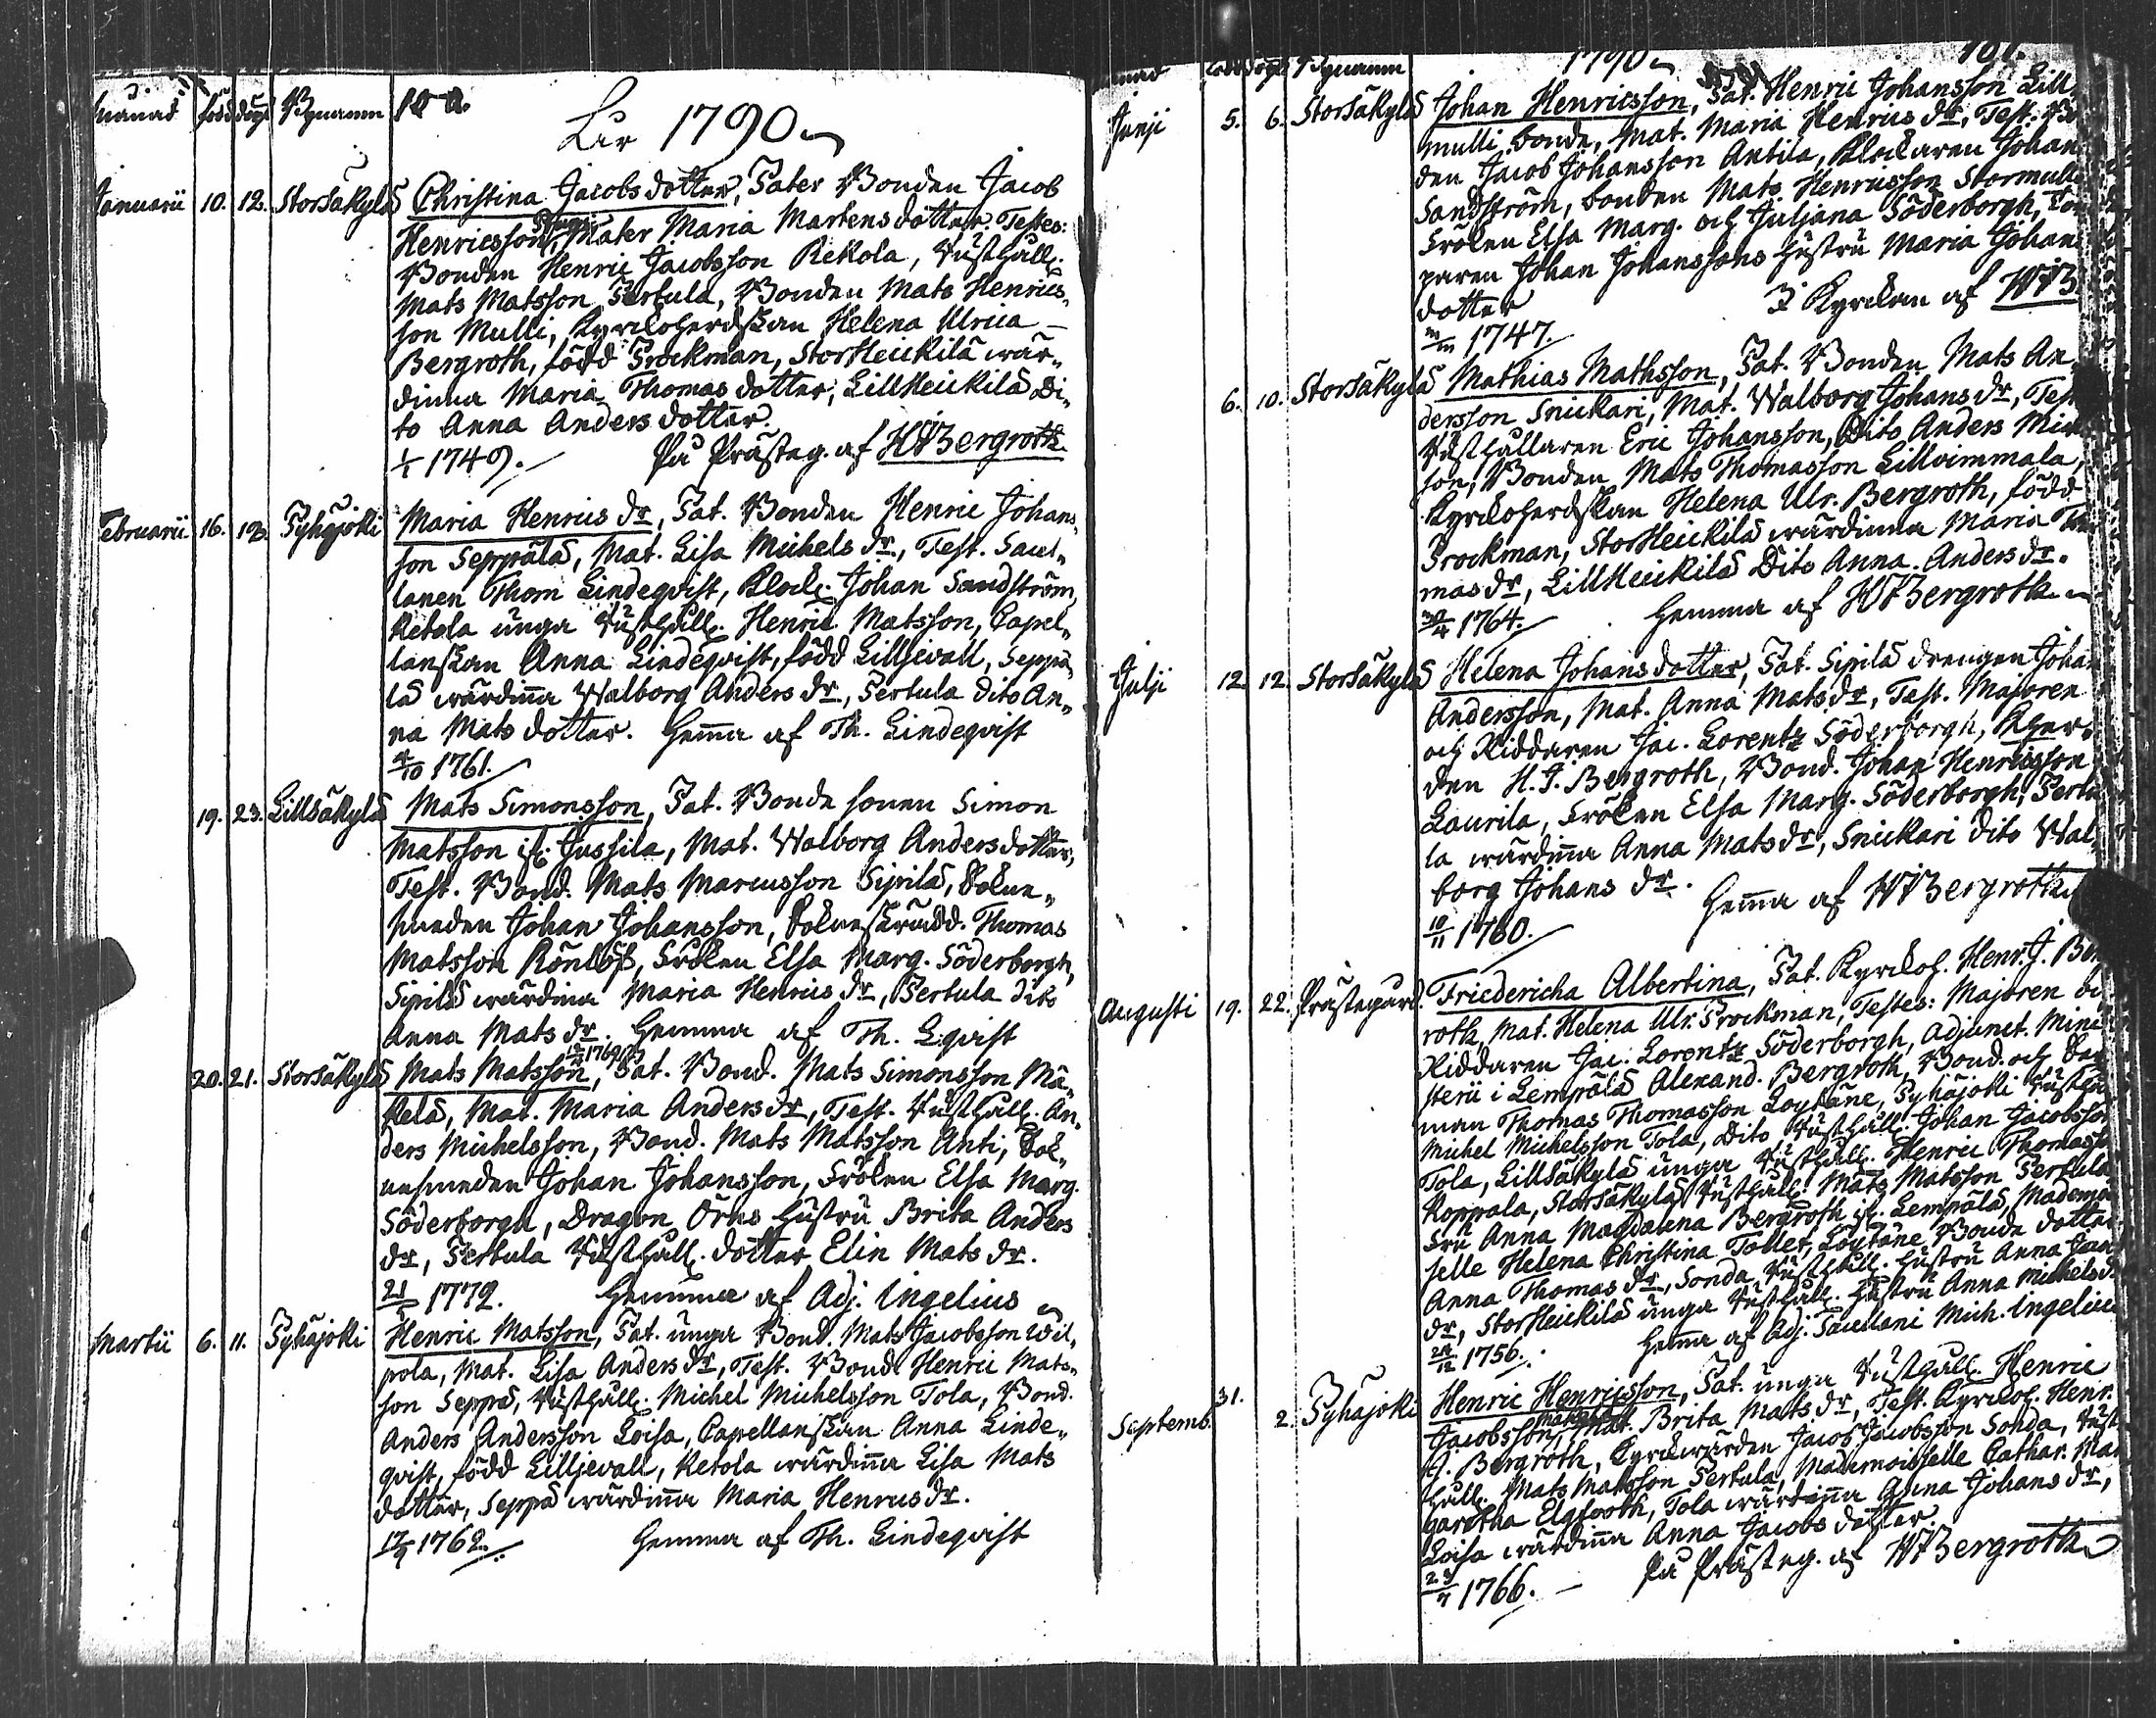 månad född döpt Bynamn 100.
Åhr 1790
Januarii 10. 12. Storsäkylä Christina Jacobsdotter, Pater Bonden Jacob
Henricsson, Mater Maria Mårtensdotter. Testes:
Bonden Henric Jacobsson Rekola, Rusthåll.
Mats Matsson Pertula, Bonden Mats Henrics„
son Mulli, Kyrckoherdskan Helena Ulrica
Bergroth, född Prockman, StorHeickilä wär„
dinna Maria Thomas dotter, LillHeickilä Di„
to Anna Anders dotter.
1/1 1749. På Prästeg. af HJBergroth
Februarii 16. 18. Pyhäjoki Maria Henrics dr, Pat. Bonden Henric Johans„
son Seppälä, Mat. Lisa Michels dr, Test. Sacel„
lanen Thom Lindeqvist, Klock. Johan Sandström,
Ketola unga Rusthåll. Henric Matsson, Capel„
lanskan Anna Lindeqvist, född Lilljevall, Seppä„
lä wärdiña Walborg Anders dr, Pertula dito An„
na Mats dotter. Hema af Th. Lindeqvist
4/10 1761.
19. 23. Lillsäkylä Mats Simonsson, Pat. Bonde sonen Simon
Matsson ifr. Jussila, Mat. Walborg Andersdotter,
Test. Bond. Mats Marcusson Sipilä, Sokne„
smeden Johan Johansson, Sokneskrädd. Thomas
Matsson Rönlöf, Fröken Elsa Marg. Söderborgh,
Sipilä wärdina Maria Henrics dr, Pertula dito
Anna Mats dr. Hemma af Th. Lqvist
20. 21. Storsäkylä Mats Matsson, Pat. Bond. Mats Simonsson Mä„
kelä, Mat. Maria Anders dr, Test. Rusthåll. An„
ders Michelsson, Bond. Mats Matsson Anti, Sok„
nesmeden Johan Johansson, Fröken Elsa Marg.
Söderborgh, Dragon Örns Hustru Brita Anders
dr, Pertula Rusthåll. dotter Elin Mats dr.
21/5 1772. Hemma af Adj. Ingelius
Martii 6. 11. Pyhäjoki Henric Matsson, Pat. unga Bond. Mats Jacobsson Wil„
pola, Mat. Lisa Anders dr, Test. Bond. Henric Mats„
son Seppä, Rusthåll. Michel Michelsson Tola, Bond.
Anders Andersson Loisa, Capellanskan Anna Linde„
qvist, född Lilljevall, Ketola wärdinna Lisa Mats
dotter, Seppä wärdiña Maria Henrics dr.
17/9 1762. Hemma af Th. Lindeqvist
1790 101.
månad född döpt Bynamn
Junji 5. 6. Storsäkylä Johan Henricsson, Pat. Henric Johansson Lill
mulli bonde, Mat. Maria Henrics dr, Test. Bo
den Jacob Johansson Antila, Klockaren Johan
Sandström, bonden Mats Henricsson Stormulli
Fröken Elsa Marg. och Juljana Söderborgh,
paren Johan Johanssons Hustru Maria Johans
dotter I Kyrckan af HJB
1747.
6. 10. Storsäkylä Mathias Mathsson, Pat. Bonden Mats An„
dersson Snickari, Mat. Walborg Johans dr, Test
Rusthållaren Eric Johansson, Dito Anders Mic
son, Bonden Mats Thomasson Lillvimmala,
Kyrckoherdskan Helena Ulr. Bergroth, född
Prockman, StorHeickilä wärdinna Maria Tho
mas dr, LillHeickilä Dito Anna Anders dr.
30/4 1764. Hemma af HJBergroth
Julji 12. 12. Storsäkylä Helena Johansdotter, Pat. Sipilä drengen Johan
Andersson, Mat. Anna Mats dr, Test. Majoren
och Riddaren Jac. Lorentz Söderborgh, Kyrr„
den H. J. Bergroth, Bond. Johan Henricsson
Laurila, Fröken Elsa Marg. Söderborgh, Pertu
la wärdiña Anna Mats dr, Snickari dito Wal„
borg Johans dr. Hema af HJBergroth
10/11 1760.
Augusti 19. 22. Prästegård. Friedericha Albertina, Pat. Kyrckoh. Henr. J. Ber
roth, Mat. Helena Ulr. Prockman, Testes: Majoren oc
Riddaren Jac. Lorentz Söderborgh, Adjunct. Mini
sterii i Lempälä Alexand. Bergroth, Bond. och
man Thomas Thomasson Löytäne, Pyhäjoki Rusthå
Michel Michelsson Tola, Dito Rusthåll. Johan Jacobsson
Tola, Lillsäkylä unga Rusthåll. Henric Thomasso
Koppala, Storsäkylä Rusthåll. Mats Matsson Pertula
Fru Anna Magdalena Bergroth ifr. Lempälä, Mademoi
selle Helena Christina Tollet, Löytäne Bonde dotter
Anna Thomas dr, Sonda Rusthåll. Hustru Anna Jac
dr, StorHeickilä unga Rusthåll. Hustru Anna Michels d
24/12 1756. Hema af Adj. Sacellani Mich. Ingelius
Septemb. 31. 2. Pyhäjoki Henric Henricsson, Pat. unga Rusthåll. Henric
Jacobsson, Mat. Brita Mats dr, Test. Kyrckoh. Henr.
J. Bergroth, Kyrckwärden Jacob Jacobsson Sonda, Rust
håll. Mats Matsson Pertula, Mademoiselle Cathar. Mar
garetha Elgfooth, Tola wärdinna Anna Johans dr,
Loisa wärdiña Anna Jacobs dotter.
23/7 1766. På Prästeg. af HJBergroth